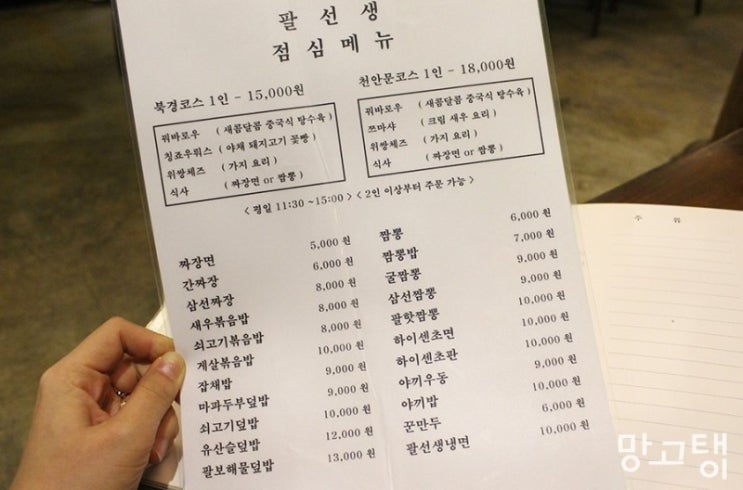 팔 선 생
점 심 메 뉴
북경코스 1인 - 15,000원
꿔바로우 ( 새콤달콤 중국식 탕수육 )
칭죠우뤄스 ( 야채 돼지고기 꽃빵 )
위쌍체즈 ( 가지 요리 )
식사 ( 짜장면 or 짬뽕 )
천안문코스 1인 - 18,000원
꿔바로우 ( 새콤달콤 중국식 탕수육 )
쯔마샤 ( 크림 새우 요리 )
위쌍체즈 ( 가지 요리 )
식사 ( 짜장면 or 짬뽕 )
< 평일 11:30 ~15:00 > < 2인 이상부터 주문 가능 >
짜장면 5,000 원
간짜장 6,000 원
삼선짜장 8,000 원
새우볶음밥 8,000 원
쇠고기볶음밥 8,000 원
게살볶음밥 10,000 원
잡채밥 9,000 원
마파두부덮밥 9,000 원
쇠고기덮밥 10,000 원
유산슬덮밥 12,000 원
팔보해물덮밥 13,000 원
짬뽕 6,000 원
짬뽕밥 7,000 원
굴짬뽕 9,000 원
삼선짬뽕 9,000 원
팔핫짬뽕 10,000 원
하이센초면 10,000 원
하이센초판 10,000 원
야끼우동 9,000 원
야끼밥 10,000 원
꾼만두 6,000 원
팔선생냉면 10,000 원
망고탱